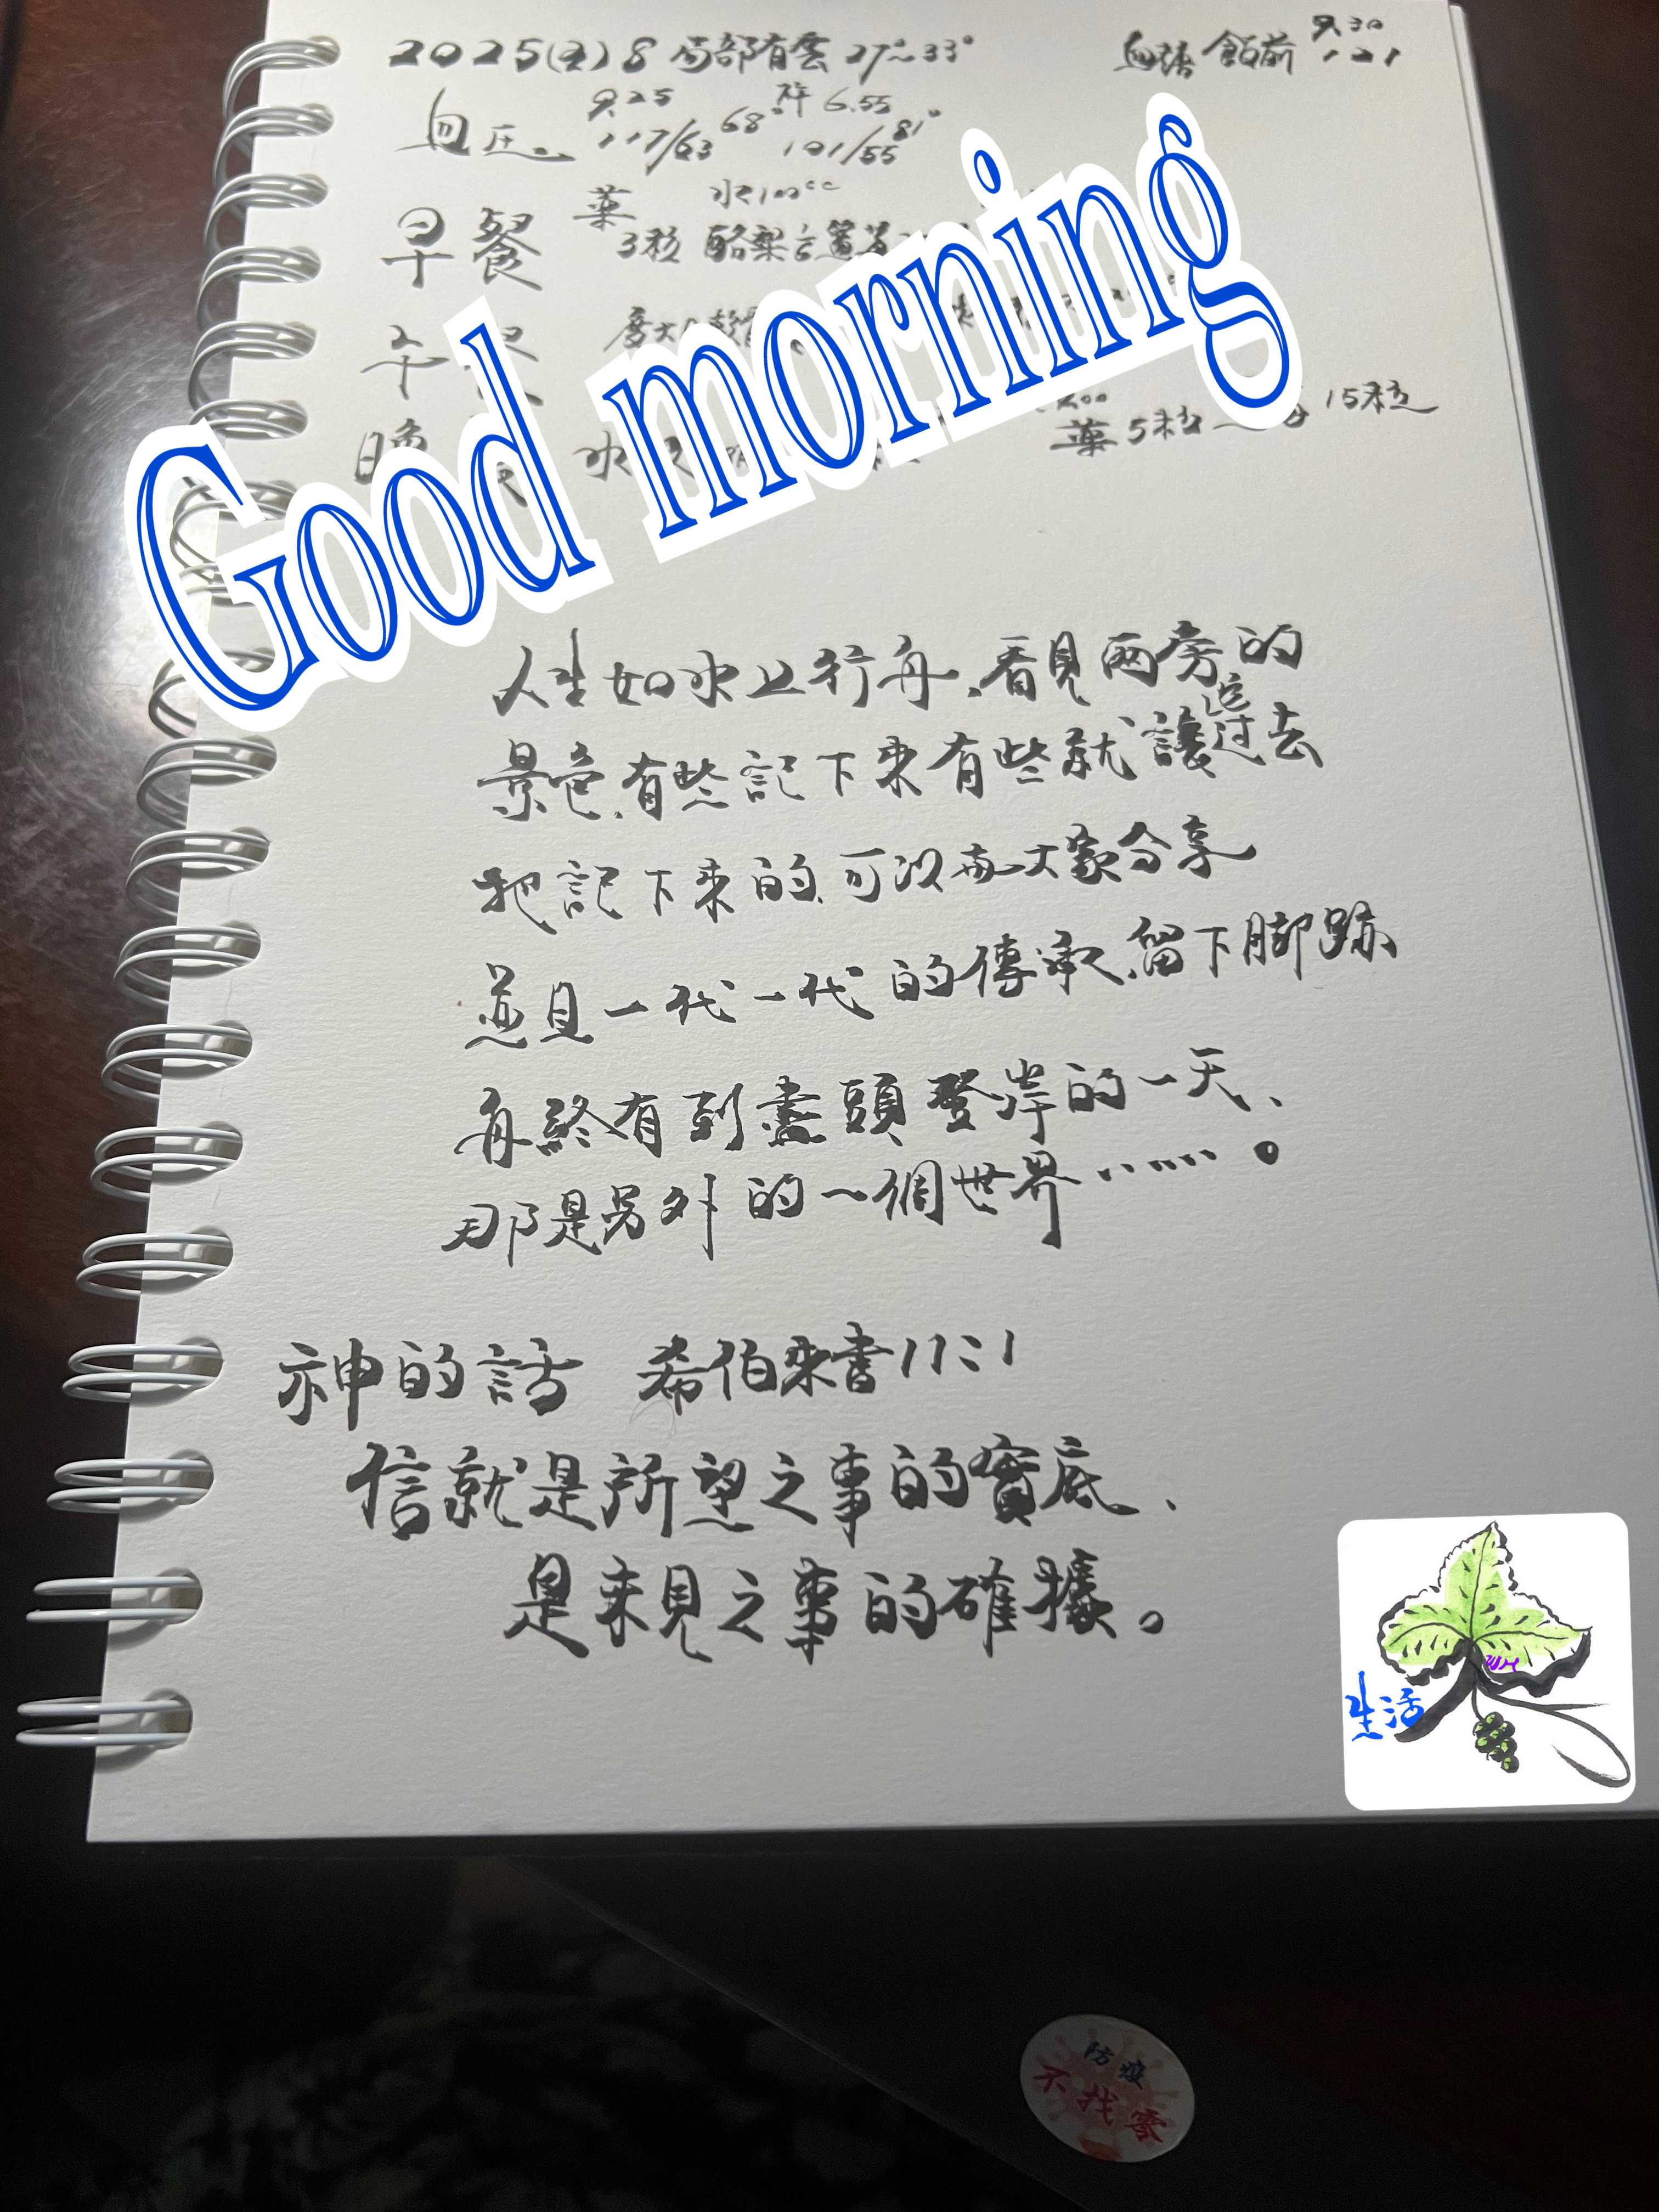 2025(五)8 局部有雲 27°~33°
血糖 飯前 9.30 121
血压. 9.25 117/63 68° 6.55 101/55 81°
早餐 薬 3粒 水100cc 酪梨
午
晚 水 薬5粒 15粒
Good morning
人生如水上行舟,看見兩旁的
景色,有些記下來有些就讓它过去
把記下來的,可以與大家分享
並且一代一代的傳承,留下脚跡
舟終有到盡頭登岸的一天、
那是另外的一個世界……。
神的話 希伯來書11:1
信就是所望之事的實底、
是未見之事的確據。
生活
防疫
不找零